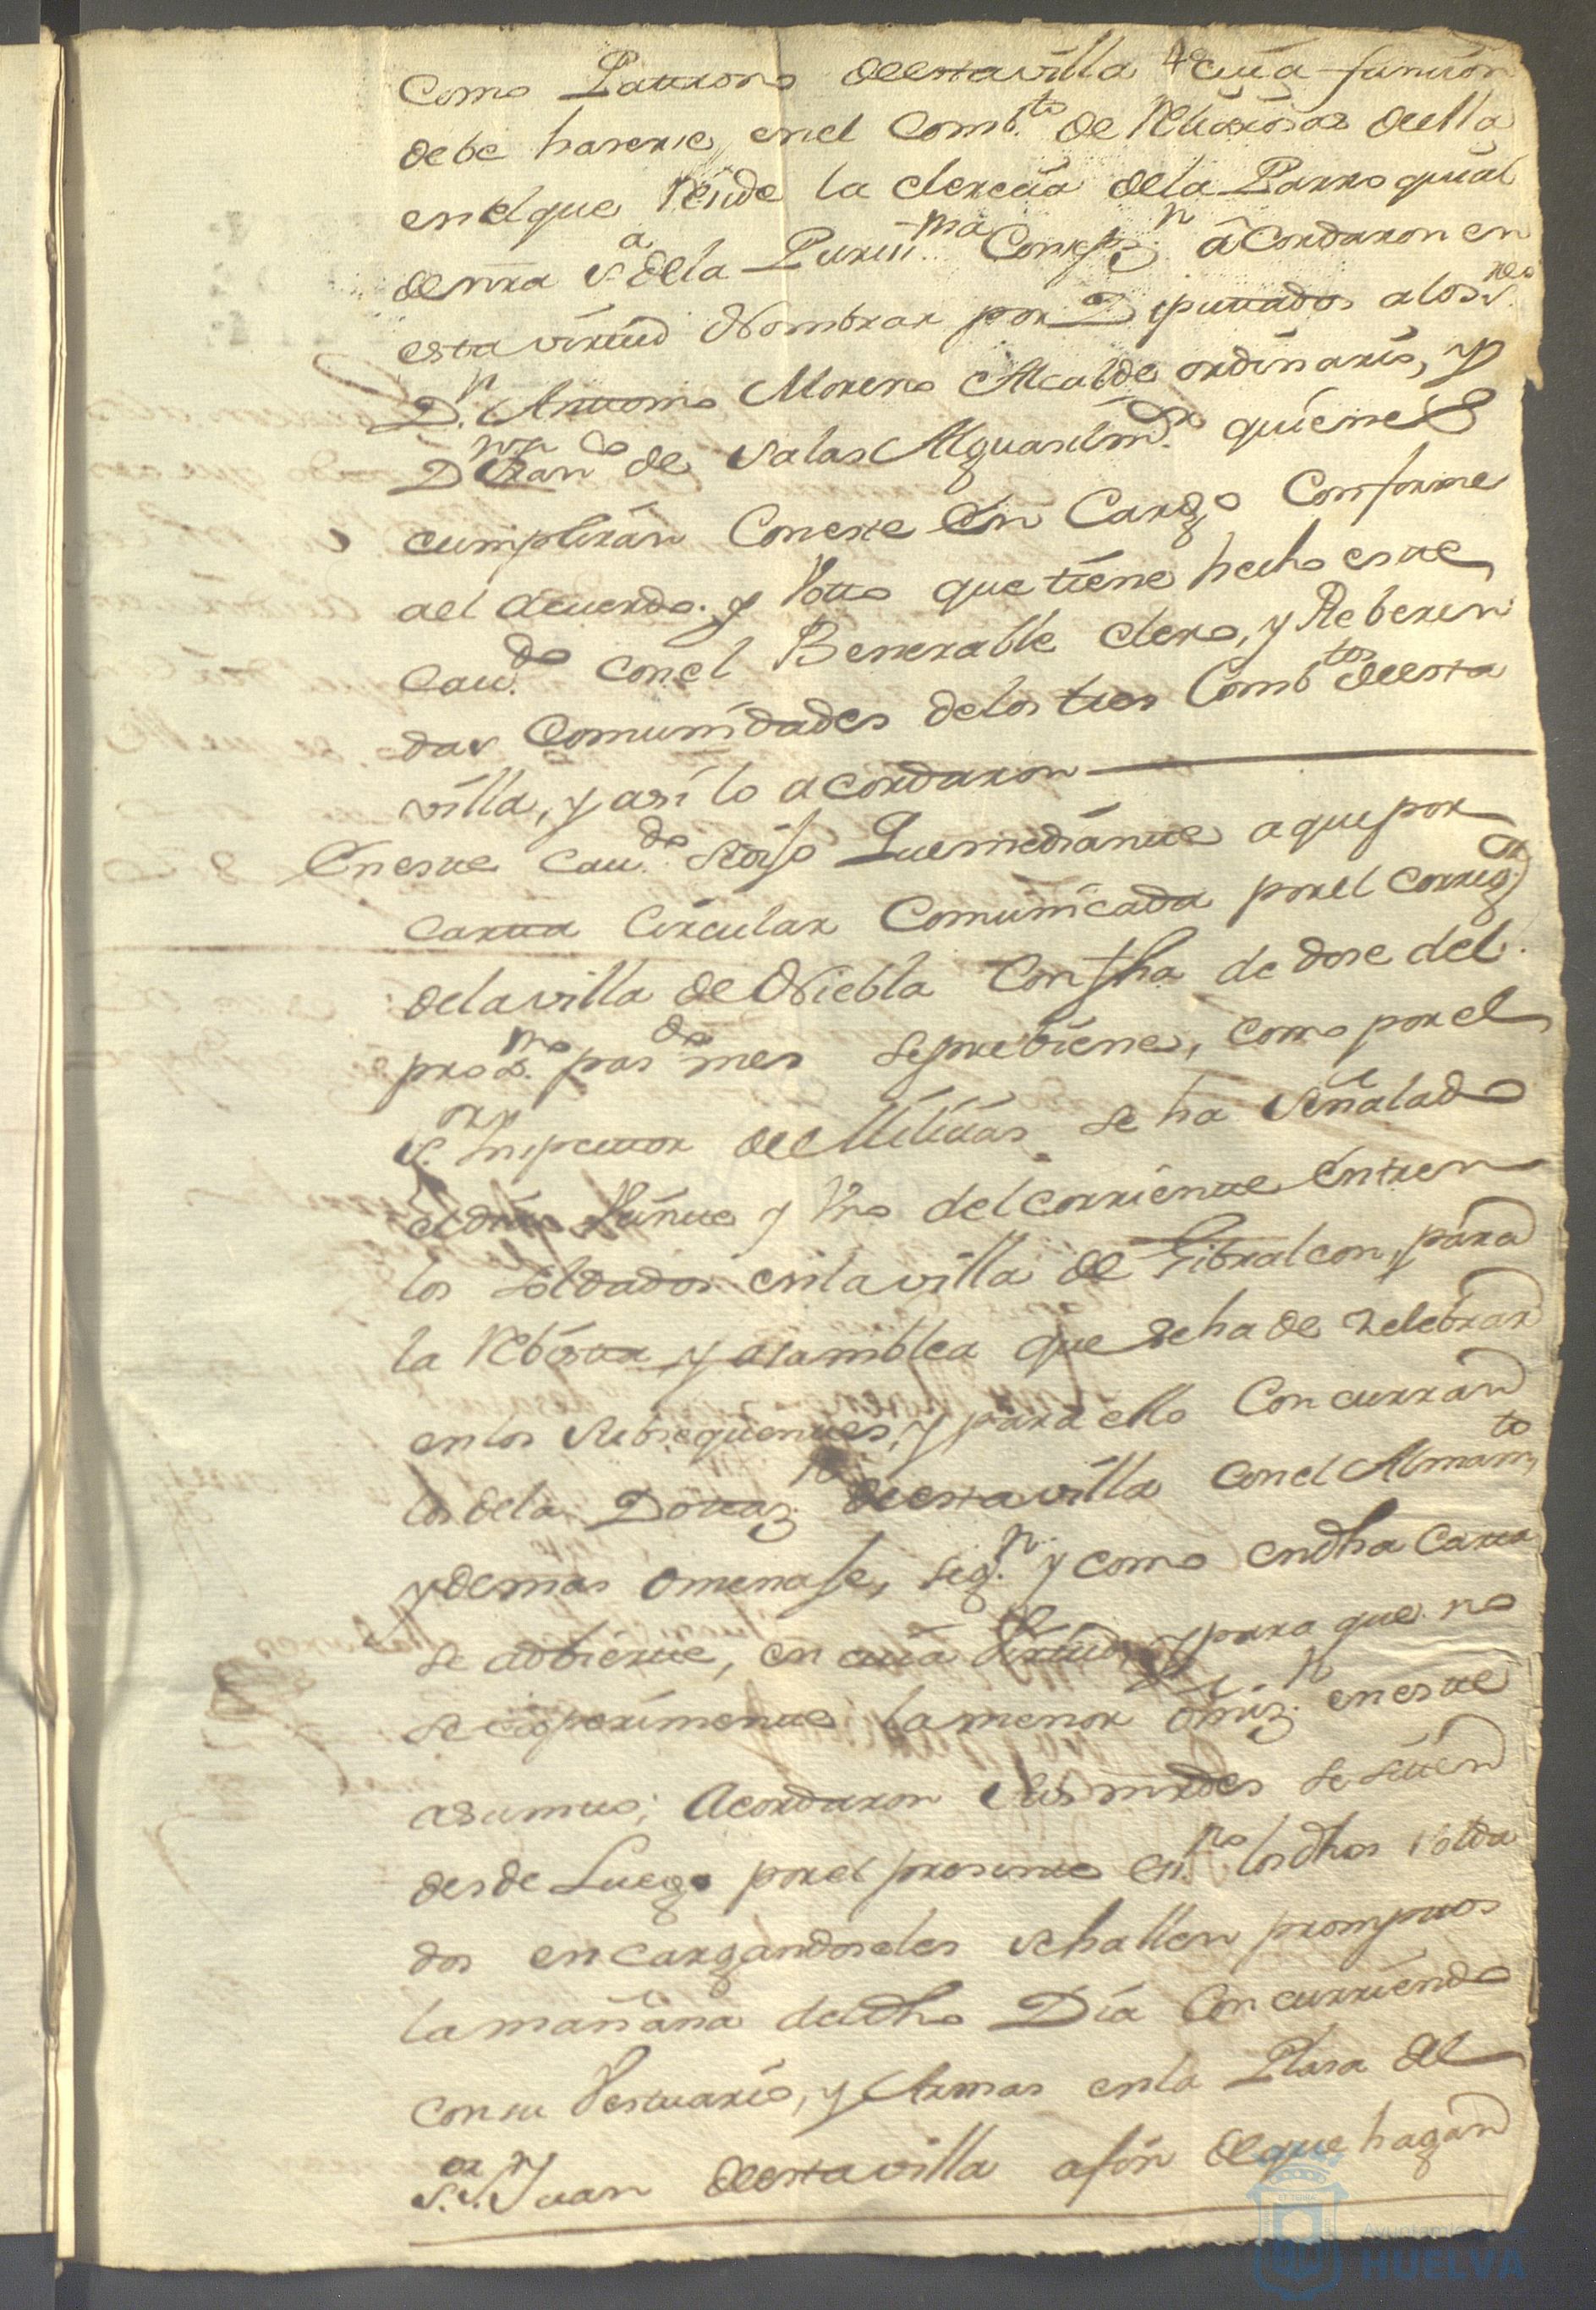 Como Pattrono deesta villa, cuia funcion
debe hacerse, en el Comb.to de Relixiosas della
en el que recide la clerecia dela Parroquial
de nra S.a dela Puriss.ma Concepz.n acordaron en
esta virtud Nombrar por Diputtados a los S.res
D.n Anttonio Moreno Alcalde ordinario, y
D.n Fran.co de Salas Alguasil m.or quienes
cumplirán Coneste En Cargo Conforme
ael acuerdo. y Votto que tiene hecho este
Cau.do con el Benerable clero, y Reberen
das Comunidades delos tres Comb.tos deesta
villa, y asi lo acordaron
En este Cau.do se dijo Que mediante a que por
Cartta Circular Comunicada por el Correg.or
dela villa de Niebla Con fha de dose del
prox.mo pas.do mes se prebiene, como por el
S.or Inspecttor de Milicias se ha señalado
el dia Veinte y Vno del corriente Entren
los soldados en la villa de Gibraleon, para
la Rebista y asamblea que se ha de zelebrar
en los Subsequentes, y para ello Concurran
los dela Dottaz.n deesta villa con el Armam.to
y demas omenaje, seg.n y como en dha Cartta
se adbierte, en cuia Virtud, y para que no
se experimente la menor omiz.n en este
asumto; Acordaron Sus mrdes se sitten
desde Luego por el presente es.no los dhos solda
dos en cargandoseles se hallen promptos
la mañana de dho Dia Concurriendo
con su Vestuario, y Armas en la Plasa del
S.or S.n Juan deesta villa a fin de que hagan
Ayuntamiento de
HUELVA